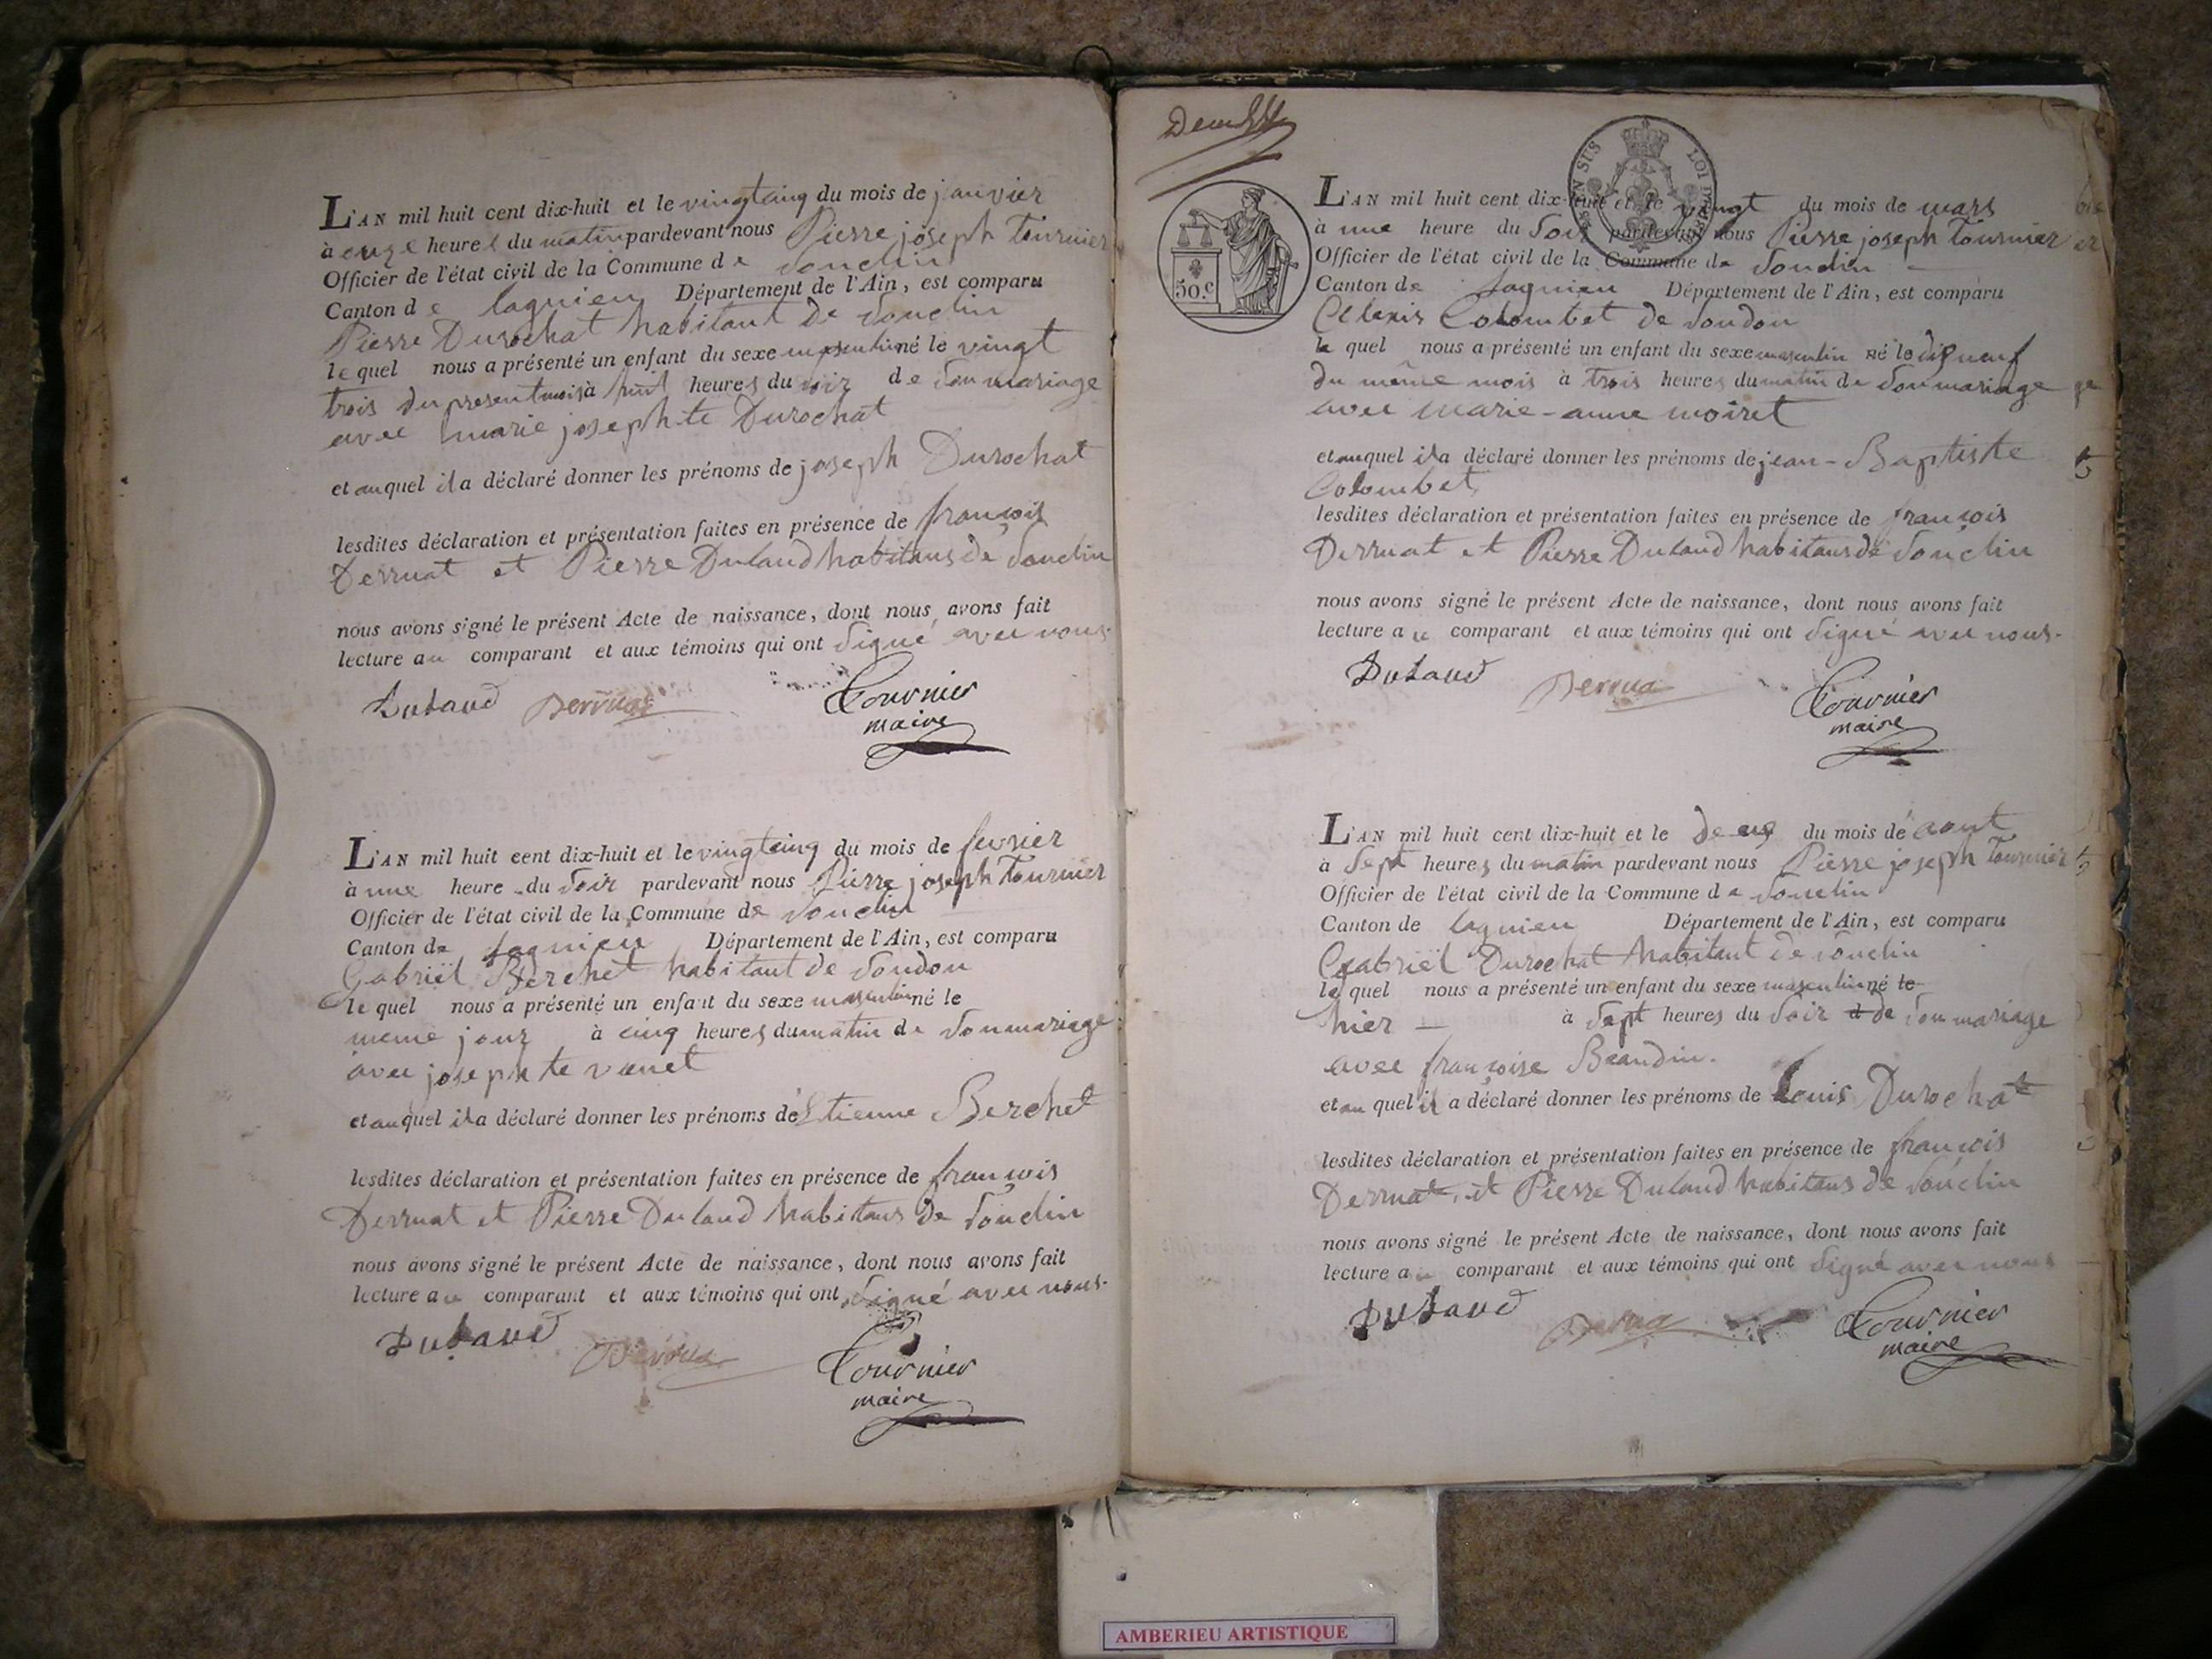 L'AN mil huit cent dix-huit et le vingtcinq du mois de janvier
à onze heures du matin pardevant nous Pierre joseph Tournier
Officier de l'état civil de la Commune de Souclin
Canton de lagnieu Département de l'Ain, est comparu
Pierre Durochat habitant de Souclin
lequel nous a présenté un enfant du sexe masculin né le vingt
trois du present mois à huit heures du soir de Son mariage
avec marie josephte Durochat
et auquel il a déclaré donner les prénoms de joseph Durochat
lesdites déclaration et présentation faites en présence de françois
Derruat et Pierre Dulaud habitans de Souclin
nous avons signé le présent Acte de naissance, dont nous avons fait
lecture au comparant et aux témoins qui ont Signé avec nous.
Dulaud Derruat Tournier
maire
L'AN mil huit cent dix-huit et le vingtcinq du mois de fevrier
à une heure du Soir pardevant nous Pierre joseph Tournier
Officier de l'état civil de la Commune de Souclin
Canton de Lagnieu Département de l'Ain, est comparu
Gabriël Berchet habitant de Soudon
lequel nous a présenté un enfant du sexe masculin né le
meme jour à cinq heures du matin de Son mariage
avec josephte venet
et auquel il a déclaré donner les prénoms de Etienne Berchet
lesdites déclaration et présentation faites en présence de françois
Derruat et Pierre Dulaud habitans de Souclin
nous avons signé le présent Acte de naissance, dont nous avons fait
lecture au comparant et aux témoins qui ont Signé avec nous.
Dulaud Derrua Tournier
maire
50.c
L'AN mil huit cent dix-huit et le vingt du mois de mars
à une heure du Soir pardevant nous Pierre joseph Tournier
Officier de l'état civil de la Commune de Souclin
Canton de Lagnieu Département de l'Ain, est comparu
Alexis Colombet de Soudon
le quel nous a présenté un enfant du sexe masculin né le dixneuf
du même mois à trois heures du matin de Son mariage
avec marie-anne moiret
et auquel il a déclaré donner les prénoms de jean-Baptiste
Colombet
lesdites déclaration et présentation faites en présence de françois
Derruat et Pierre Dulaud habitans de Souclin
nous avons signé le présent Acte de naissance, dont nous avons fait
lecture au comparant et aux témoins qui ont Signé avec nous.
Dulaud Derrua Tournier
maire
L'AN mil huit cent dix-huit et le deux du mois de aout
à Sept heures du matin pardevant nous Pierre joseph Tournier
Officier de l'état civil de la Commune de Souclin
Canton de lagnieu Département de l'Ain, est comparu
Gabriël Durochat habitant de Souclin
le quel nous a présenté un enfant du sexe masculin né le
hier à Sept heures du Soir de Son mariage
avec françoise Beaudin.
et au quel il a déclaré donner les prénoms de Louis Durochat
lesdites déclaration et présentation faites en présence de françois
Derruat, et Pierre Dulaud habitans de Souclin
nous avons signé le présent Acte de naissance, dont nous avons fait
lecture au comparant et aux témoins qui ont Signé avec nous
Dulaud Derrua Tournier
maire
AMBERIEU ARTISTIQUE